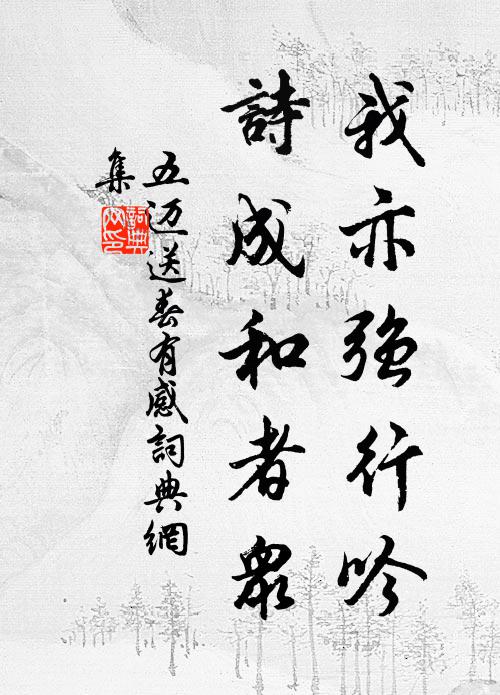 我亦強行吟
詩成和者眾
五迈送春有感詞典網
集
詞典
网印